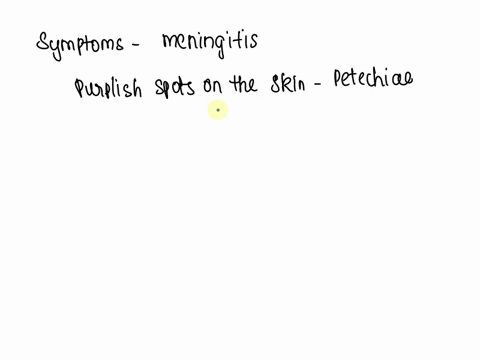 Symptoms - meningitis
Purplish spots on the skin - Petechiae